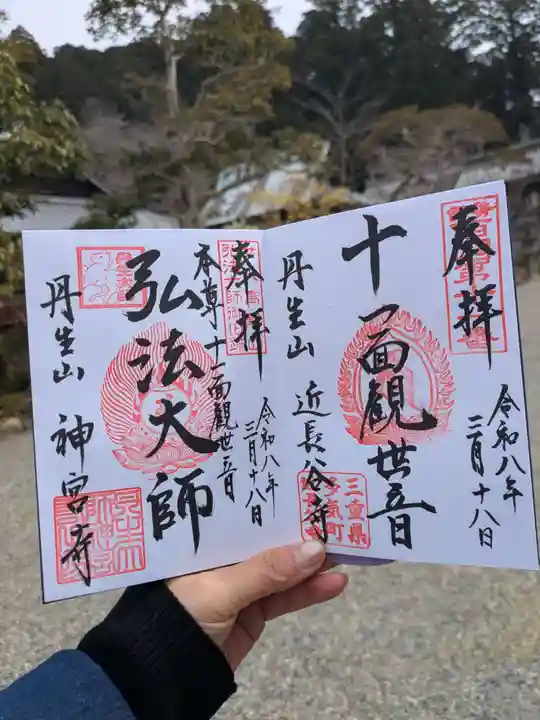 奉拝
令和八年
三月十八日
十一面観世音
丹生山
近長谷寺
三重県
多気町
奉拝
令和八年
三月十八日
本尊十一面観世音
弘法大師
丹生山
神宮寺